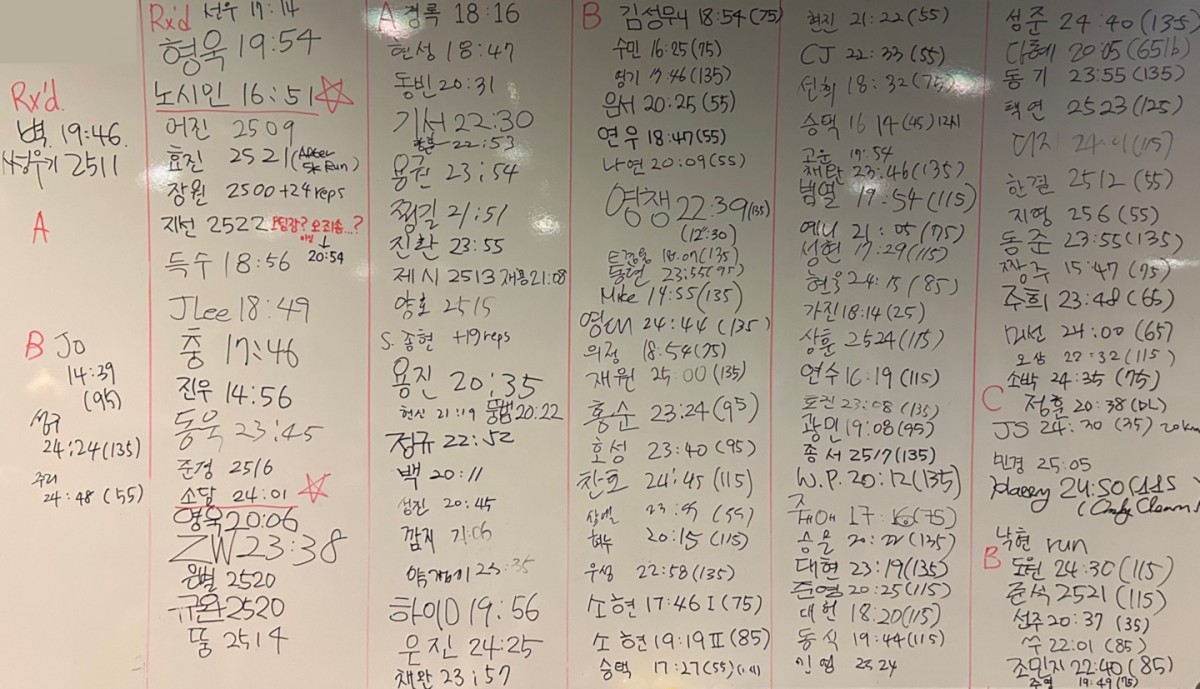 Rx'd.
벽. 19:46.
2511
A
B Jo
14:39
(95)
성규
24:24(135)
주리
24:48(55)
Rx'd 선우 17:14
형욱 19:54
노시인 16:51
어진 2509
효진 2521(After 5k Run)
장원 2500+24reps
재선 2522
20:54
득수 18:56
JLee 18:49
충 17:46
진우 14:56
동욱 23:45
준정 2516
소담 24:01
영욱 20:06
ZW 23:38
은별 2520
규완 2520
뚤 2514
A 경록 18:16
현성 18:47
동빈 20:31
기서 22:30
22:53
용권 23:54
찡길 21:51
진환 23:55
제시 2513 재용 21:08
양호 2515
S. 종현 +19reps
용진 20:35
현신 21:19 20:22
정규 22:52
백 20:11
선진 20:45
깜지
하이D 19:56
은진 24:25
채완 23:57
B 김성무니 18:54(75)
수민 16:25(75)
영기 17:46(135)
윤서 20:25(55)
연우 18:47(55)
나연 20:09(55)
영쟁 22:39(135)
(12:30)
18:07(135)
23:55(95)
Mike 14:55(135)
24:44(135)
의정 18:54(75)
재원 25:00(135)
홍순 23:24(95)
호성 23:40(95)
찬호 24:45(115)
20:15(115)
우성 22:58(135)
소현 17:46 I(75)
소현 19:19 II(85)
승택 17:27(55)
현진 21:22(55)
CJ 22:33(55)
선희 18:32(75)
승택 16 14(45)12시
고운 17:54
채탄 23:46(135)
범열 19:54(115)
예니 21:05(75)
성현 17:29(115)
현웅 24:15(85)
가진 18:14(25)
상훈 2524(115)
연수 16:19(115)
효진 23:08(135)
광민 19:08(95)
종서 2517(135)
W.P. 20:12(135)
17:16(75)
승윤 20:22(135)
대현 23:19(135)
준열 20:25(115)
대헌 18:20(115)
동식 19:44(115)
23:24
성준 24:40(135)
다혜 20:05(65lb)
동기 23:55(135)
택연 2523(125)
24:01(115)
한결 2512(55)
지영 256(55)
동준 23:55(135)
짱주 15:47(75)
주희 23:48(65)
미선 24:00(65)
27:32(115)
소박 24:35(75)
C 정훈 20:38(DL)
JS 24:30(35) 20km
민경 25:05
Harry 24:50(115
(Only Cleans)
낙현 run
B 도원 24:30(115)
준석 2521(115)
선주 20:37(35)
쑤 22:01(85)
조민지 22:40(85)
주영 19:49(75)